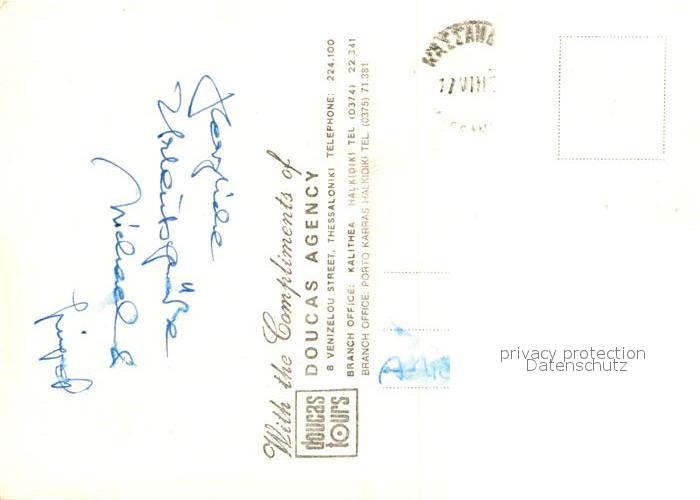 Herzliche
Urlaubsgrüße
Michael &
With the Compliments of
DOUCAS AGENCY
8 VENIZELOU STREET, THESSALONIKI TELEPHONE: 224.100
BRANCH OFFICE: KALITHEA HALKIDIKI TEL (0374) 22.341
BRANCH OFFICE: PORTO KARRAS HALKIDIKI TEL. (0375) 71.381
doucas
tours
privacy protection
Datenschutz